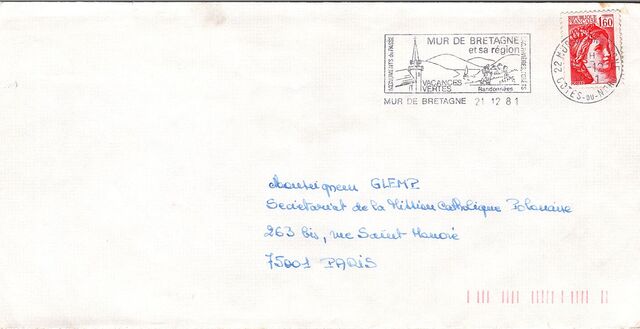 MUR DE BRETAGNE
et sa région
VACANCES
VERTES
Randonnées
MUR DE BRETAGNE 21 12 81
1,60
22 MUR
COTES-DU-NORD
Monseigneur GLEMP
Secrétariat de la Mission Catholique Polonaise
263 bis, rue Saint Honoré
75001 PARIS